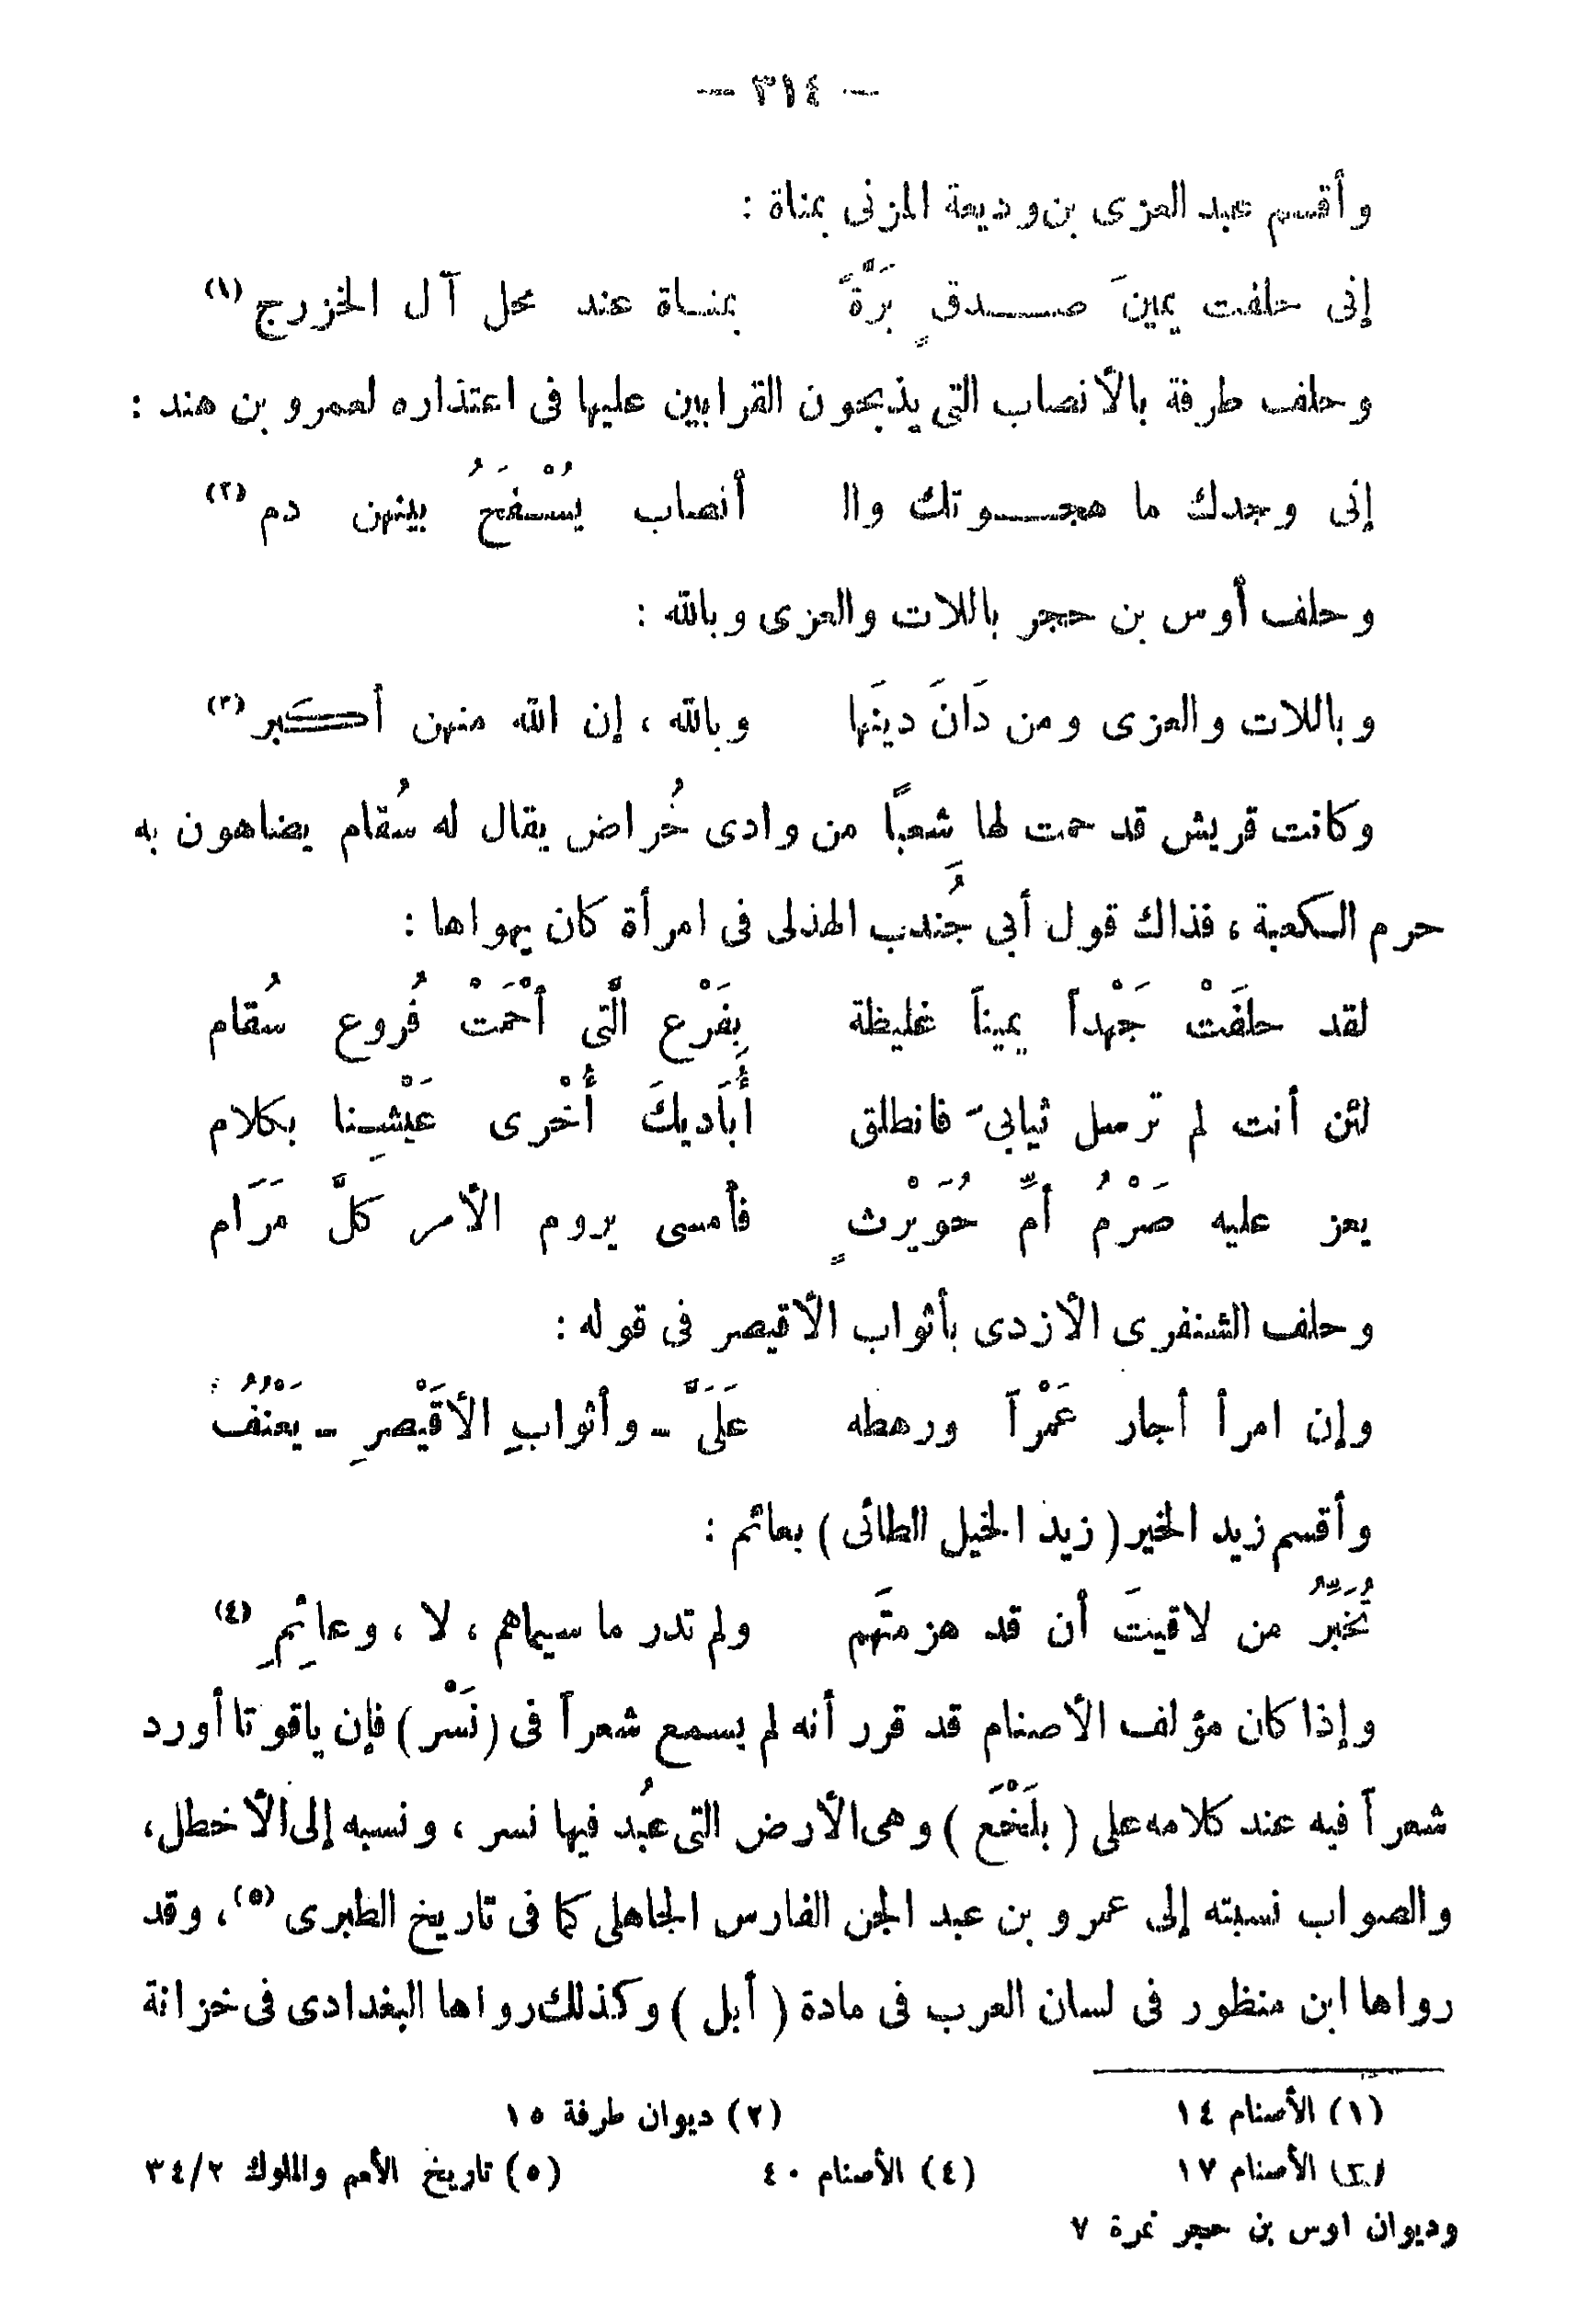 — ٣١٤ —
وأقسم عبد العزى بن وديعة المزنى بمناة :
إنى حلفت يمينَ صدقٍ بَرَّةً بمناة عند محل آل الخزرج (١)
وحلف طرفة بالأنصاب التى يذبحون القرابين عليها فى اعتذاره لعمرو بن هند :
إنى وجدك ما هجوتك وال أنصاب يُسْفَحُ بينهن دم (٢)
وحلف أوس بن حجر باللات والعزى وبالله :
وباللات والعزى ومن دَانَ دينَها وبالله ، إن الله منهن أكبر (٣)
وكانت قريش قد حمت لها شعبًا من وادى خُراض يقال له سُقام يضاهون به
حرم الكعبة ، فذاك قول أبي جُندب الهذلى فى امرأة كان يهواها :
لقد حلفَتْ جَهْداً يميناً غليظة بِفَرْع الَّتى أحْمَتْ فُروع سُقام
لئن أنت لم ترسل ثيابىَ فانطلق أُبَاديكَ أُخْرى عَيْشِنا بكلام
يعز عليه صَرْمُ أمِّ حُوَيْرثٍ فأمسى يروم الأمر كلَّ مَرَام
وحلف الشنفرى الأزدى بأثواب الأقيصر فى قوله :
وإن امرأ أجار عَمْراً ورهطه عَلَىَّ - وأثوابِ الأقَيْصرِ - يَعْنُفُ
وأقسم زيد الخير ( زيد الخيل الطائى ) بعائم :
تُخَبِّرُ من لاقيتَ أن قد هزمتَهم ولم تدر ما سيماهم ، لا ، وعائِمِ (٤)
وإذا كان مؤلف الأصنام قد قرر أنه لم يسمع شعراً فى ( نَسْر ) فإن ياقوتا أورد
شعراً فيه عند كلامه على ( بلخَع ) وهى الأرض التى عُبد فيها نسر ، ونسبه إلى الأخطل ،
والصواب نسبته إلى عمرو بن عبد الجن الفارس الجاهلى كما فى تاريخ الطبرى (٥) ، وقد
رواها ابن منظور فى لسان العرب فى مادة ( أبل ) وكذلك رواها البغدادى فى خزانة
(١) الأصنام ١٤ (٢) ديوان طرفة ١٥
(٣) الأصنام ١٧ (٤) الأصنام ٤٠ (٥) تاريخ الأمم والملوك ٣٤/٢
وديوان اوس بن حجر نمرة ٧